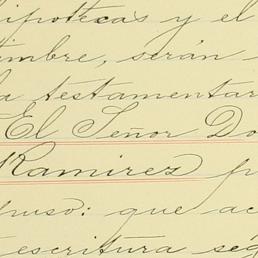 hipotecas y el
timbre, serán
la testamentar
El Señor Do
Ramirez p
puso: que ac
escritura seg